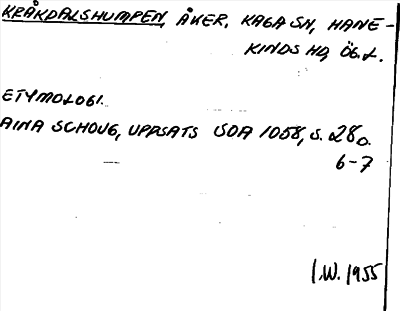 KRÅKDALSHUMPEN, ÅKER, KAGA SN, HANE-
KINDS HD, ÖG.L.
ETYMOLOGI.
AINA SCHOUG, UPPSATS SOA 1058, S. 28 o.
6-7
I.W. 1955